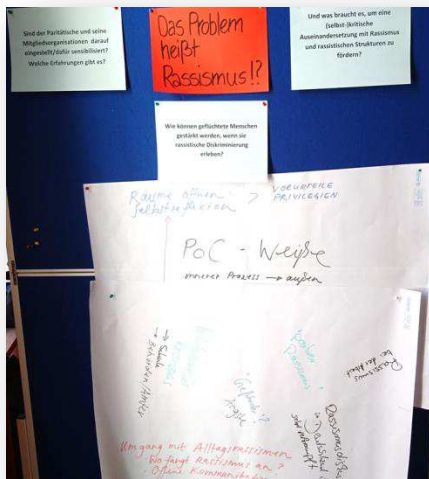 Sind der Paritätische und seine
Mitgliedsorganisationen darauf
eingestellt/dafür sensibilisiert?
Welche Erfahrungen gibt es?
Das Problem
heißt
Rassismus!?
Und was braucht es, um eine
(selbst-)kritische
Auseinandersetzung mit Rassismus
und rassistischen Strukturen zu
fördern?
Wie können geflüchtete Menschen
gestärkt werden, wenn sie
rassistische Diskriminierung
erleben?
Räume öffnen
Selbstreflexion
> VORURTEILE
PRIVILEGIEN
PoC - Weiße
innerer Prozess → außen
→ Schule
→ Behörden/Ämter
Rassismus
bei der Arbeit
Umgang mit Alltagsrassismen
Wo fängt Rassismus an?